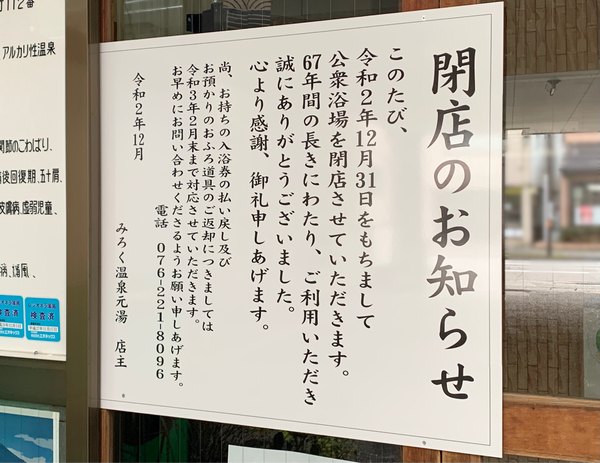 閉店のお知らせ
このたび、
令和2年12月31日をもちまして
公衆浴場を閉店させていただきます。
67年間の長きにわたり、ご利用いただき
誠にありがとうございました。
心より感謝、御礼申しあげます。
尚、お持ちの入浴券の払い戻し及び
お預かりのおふろ道具のご返却につきましては
令和3年2月末まで対応させていただきます。
お早めにお問い合わせくださるようお願い申しあげます。
電話 076-221-8096
令和2年12月
みろく温泉元湯 店主
町112番
アルカリ性温泉
関節のこわばり、
病後回復期、五十肩、
皮膚病、虚弱児童、
検査済
検査済